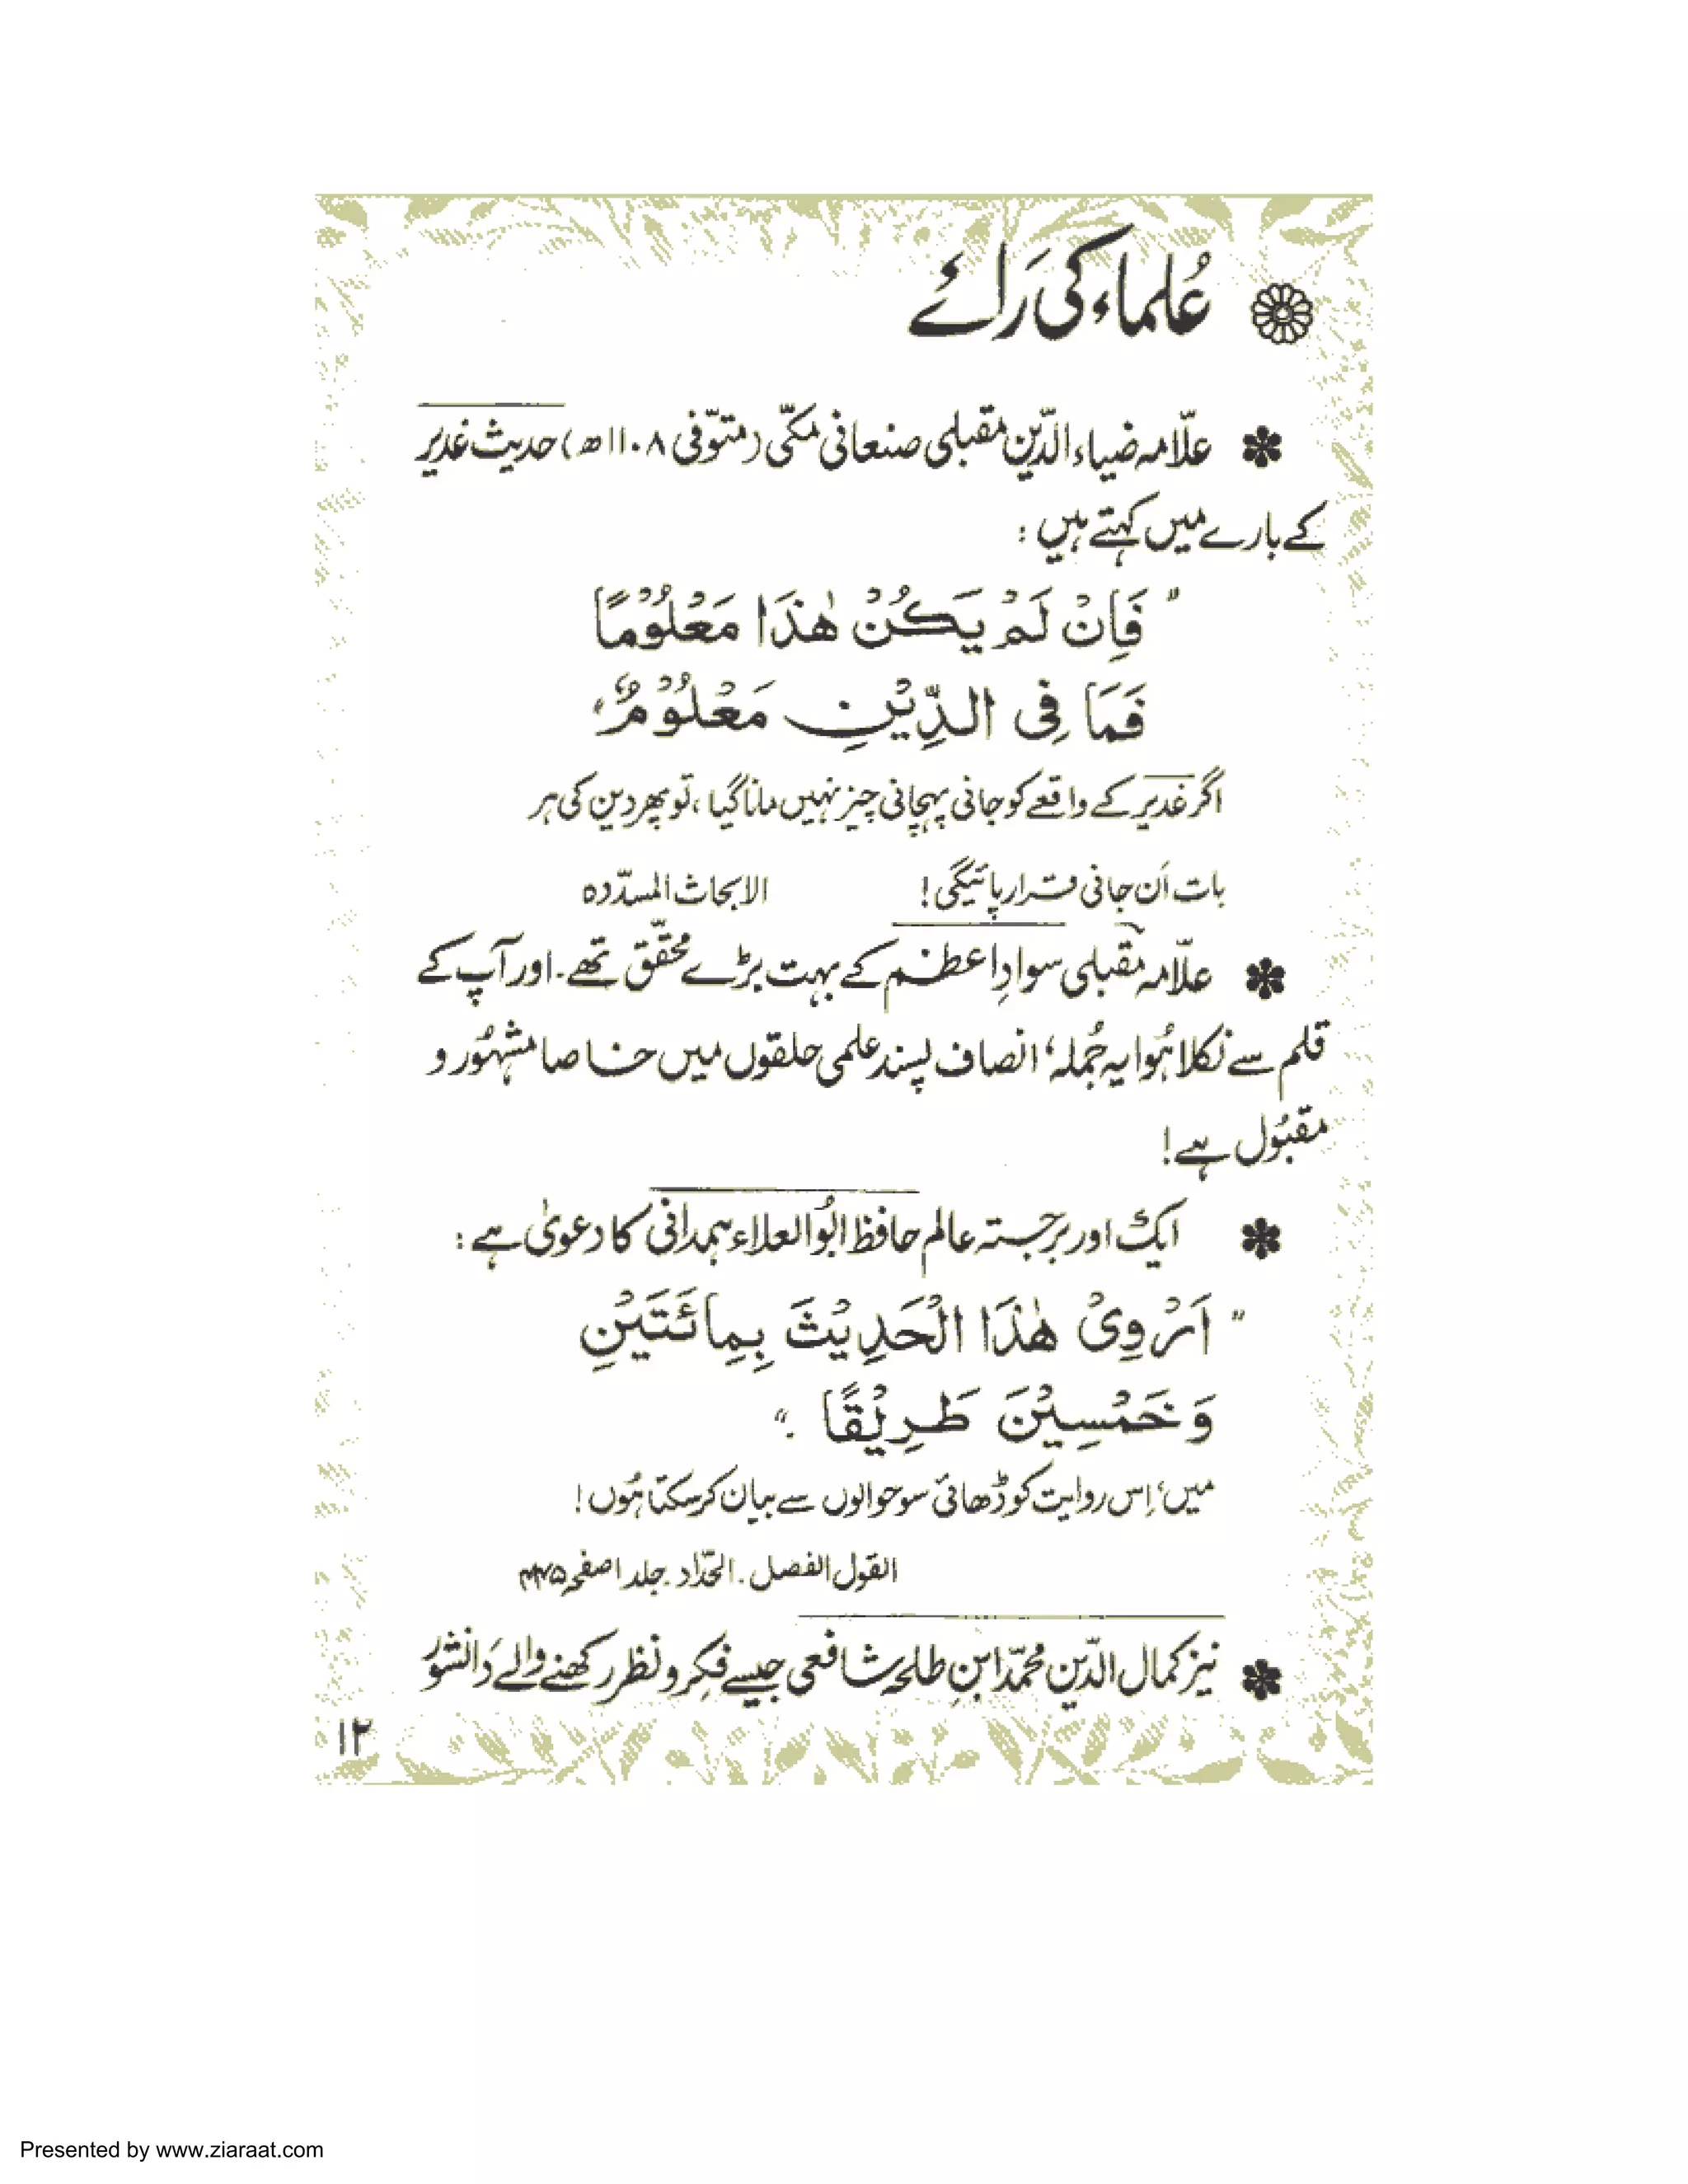 عُلماء کی رَائے
علّامہ ضیاء الدّین مقبلی صنعانی مکّی (متوّفی ۱۱۰۸ھ) حدیث غدیر
کے بارے میں کہتے ہیں :
" فَاِنْ لَمْ یَکُنْ ھٰذَا مَعْلُوْمًا
فَمَا فِی الدِّیْنِ مَعْلُوْمٌ "
اگر غدیر کے واقعے کو جانی پہچانی چیز نہیں مانا گیا ، تو پھر دین کی ہر
بات اَن جانی قرار پائیگی ! الابحاث المسدّدہ
علّامہ مقبلی سوادِ اعظم کے بہت بڑے محقّق تھے ۔ اور آپ کے
قلم سے نکلا ہُوا یہ جُملہ ، انصاف پسند علمی حلقوں میں خاصا مشہُور و
مقبُول ہے !
ایک اور برجستہ عالم حافظ ابُوالعلاء ہمدانی کا دعویٰ ہے :
" اَرْوِیْ ھٰذَا الْحَدِیْثَ بِمِائَتَیْنِ
وَخَمْسِیْنَ طَرِیْقًا ۔"
میں ، اِس روایت کو ڈھائی سو حوالوں سے بیان کرسکتا ہُوں !
القول الفصل ۔ الحدّاد ۔ جلد ۱ صفحہ ۴۴۵
نیز کمال الدّین محمّد ابنِ طلحہ شافعی جیسے فکر و نظر رکھنے والے دَانشور
۱۲
Presented by www.ziaraat.com